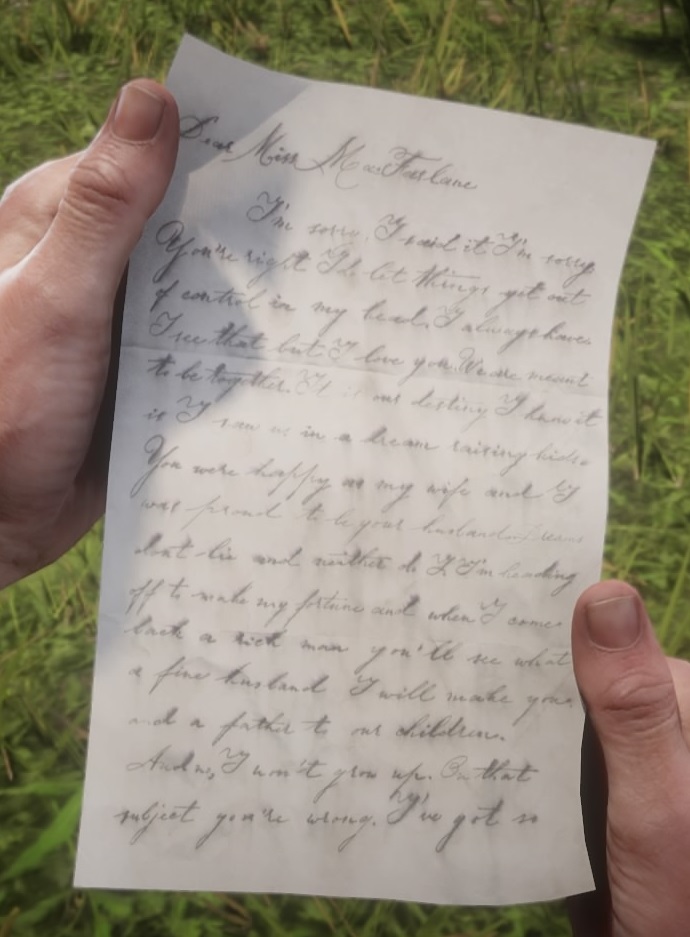 Dear Miss MacFarlane
I'm sorry. I said it I'm sorry
You're right I do let things get out
of control in my head. I always have.
I see that but I love you. We are meant
to be together. It is our destiny I know it
is I saw us in a dream raising kids.
You were happy as my wife and I
was proud to be your husband. Dreams
dont lie and neither do I. I'm heading
off to make my fortune and when I come
back a rich man you'll see what
a fine husband I will make you
and a father to our children.
And no, I won't grow up. On that
subject you're wrong. I've got so